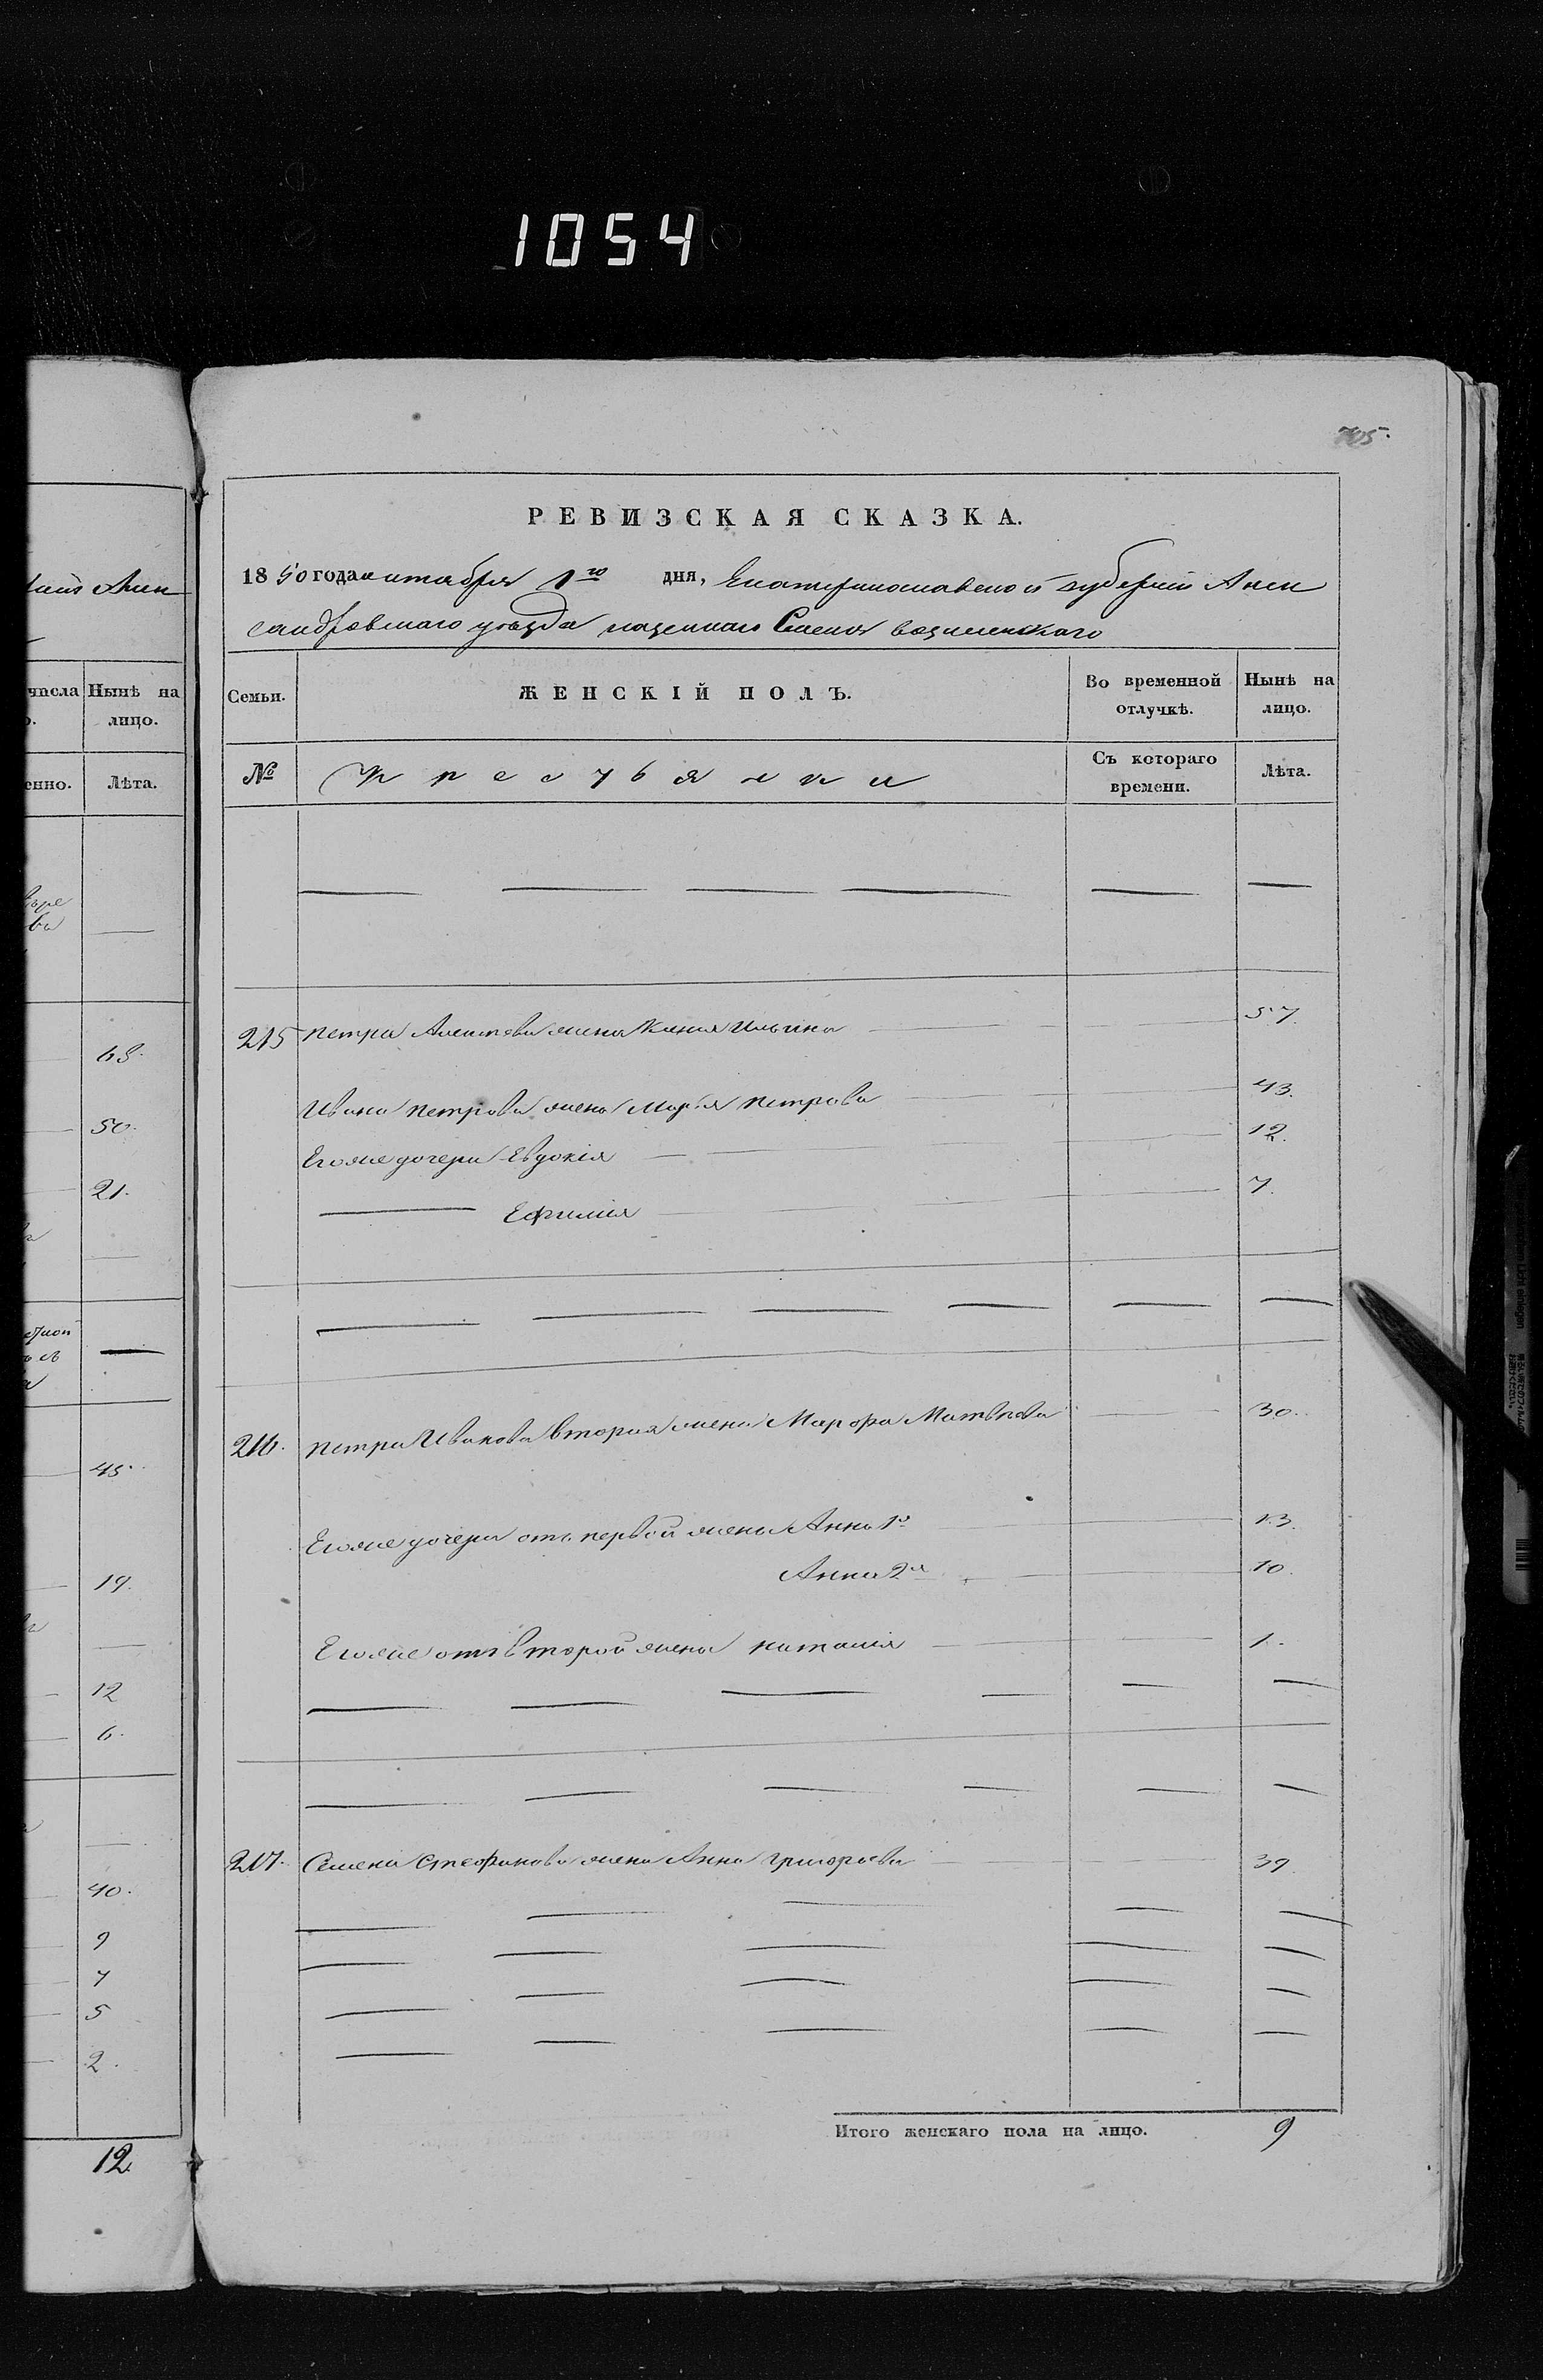 1054
705.
РЕВИЗСКАЯ СКАЗКА.
1850 года октября 1го дня, Екатеринославской губерніи Алек
сандровскаго уѣзда казеннаго Селенія вознесенскаго
Семьи. ЖЕНСКІЙ ПОЛЪ. Во временной отлучкѣ. Нынѣ на лицо.
№ Крестьянки Съ котораго времени. Лѣта.
215 Петра Алексѣева жена Ильина 57.
Ивана Петрова жена Марья Петрова 43.
Егоже дочери Евдокія 12.
Ефимія 7.
216. Петра Иванова вторая жена Марфа Матвѣева 30.
Егоже дочери отъ первой жены Анна 1я 13.
Анна 2я 10.
Егоже отъ второй жены Наталія 1.
217. Семена Стефанова жена Анна Григорьева 39.
Итого женскаго пола на лицо. 9
Нынѣ на лицо.
Лѣта.
68.
50.
21.
45.
19.
12
6.
40.
9
7
5
2.
12